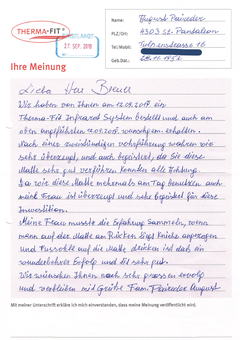 THERMA-FIT®
27. SEP. 2018
Name: August Peireder
PLZ/Ort: 4303 St. Pantaleon
Tel/Mobil: 16
Geb.Dat.: 1951
Ihre Meinung
Liebe Herr Breull
Wir haben von Ihnen am 12.09.2017 ein
Therma-Fit Infrared System bestellt und auch am
oben angeführten 12.09.2017 wunschgem. erhalten.
Nach eines zweistündigen vorführung wahren wir
sehr überzeugt, und auch begeistert, da Sie diese
Matte sehr gut vorführen konnten alle Achtung.
Da wir diese Matte mehrmals am Tag benutzen auch
meine Frau ist überzeugt und sehr begeistert für diese
Investition.
Meine Frau musste die Erfahrung Sammeln, wenn
man auf der Matte am Rücken liegt Kniehe angezogen
und Fussohle auf die Matte drücken ist das ein
wunderbahrer Erfolg und tut sehr gut.
Wir wünschen Ihnen noch sehr grossen erfolg
und verbleiben mit Grüße Fam. Peireder August
Mit meiner Unterschrift erkläre ich mich einverstanden, dass meine Meinung veröffentlicht wird.